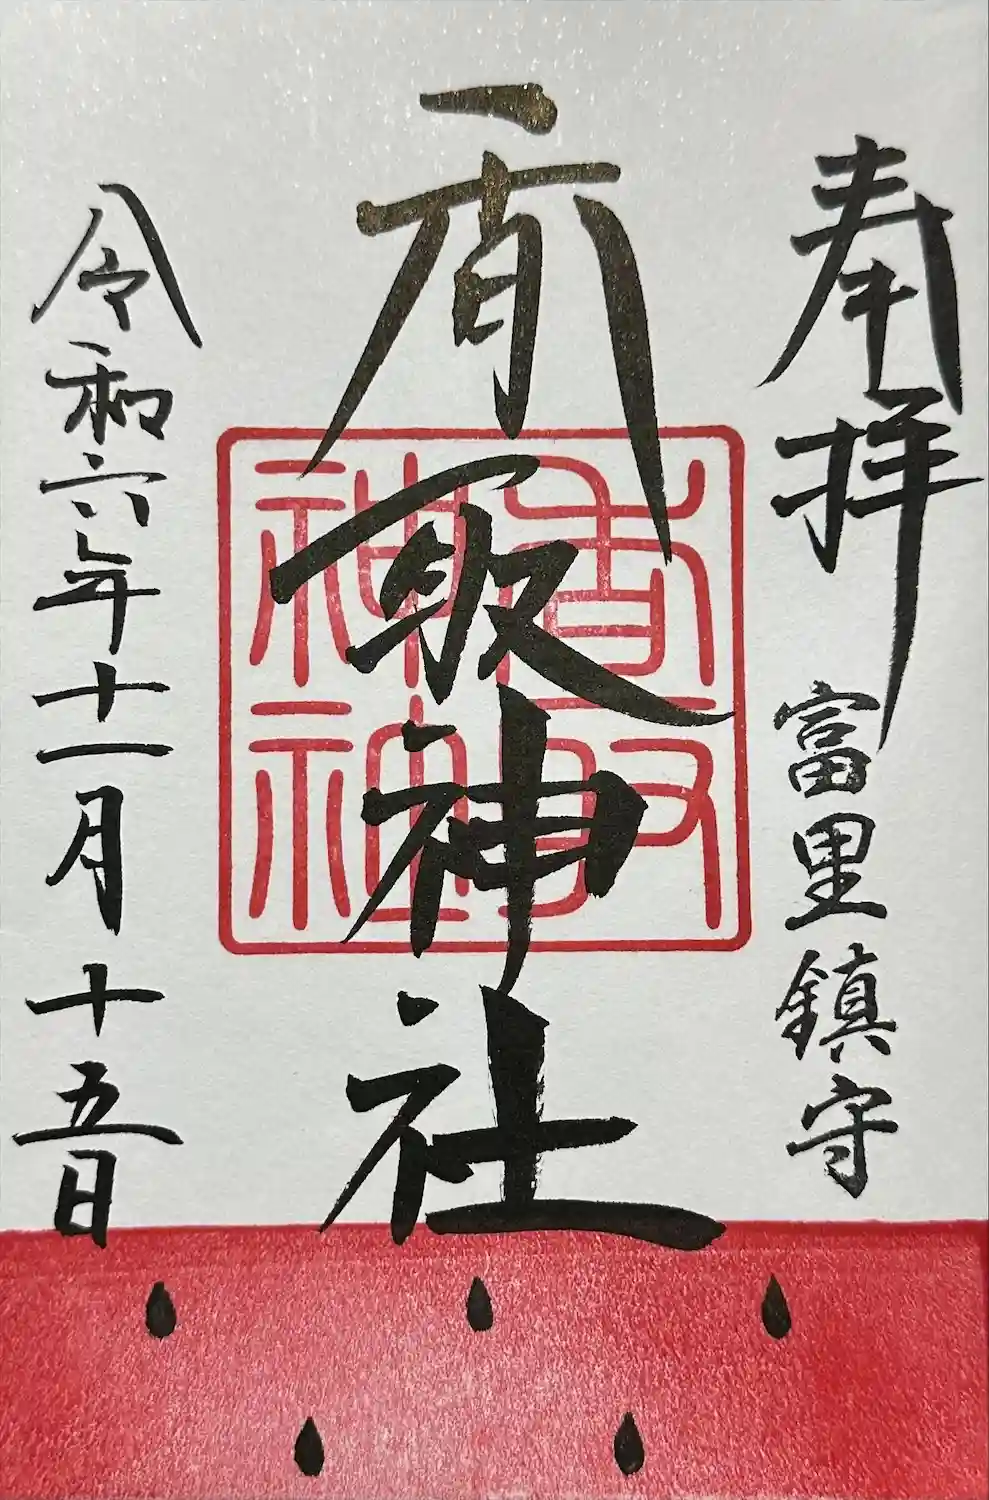 奉拝
富里鎮守
香取神社
香取
神社
令和六年十一月十五日